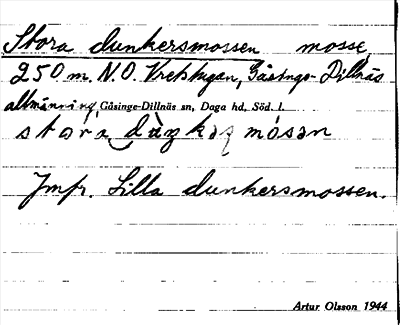 Stora dunkersmossen mosse,
250 m. N.O. Vretstugan, Gåsinge-Dillnäs
allmänning, Gåsinge-Dillnäs sn, Daga hd, Söd. l.
stora mósan
Jmfr. Lilla dunkersmossen.
Artur Olsson 1944